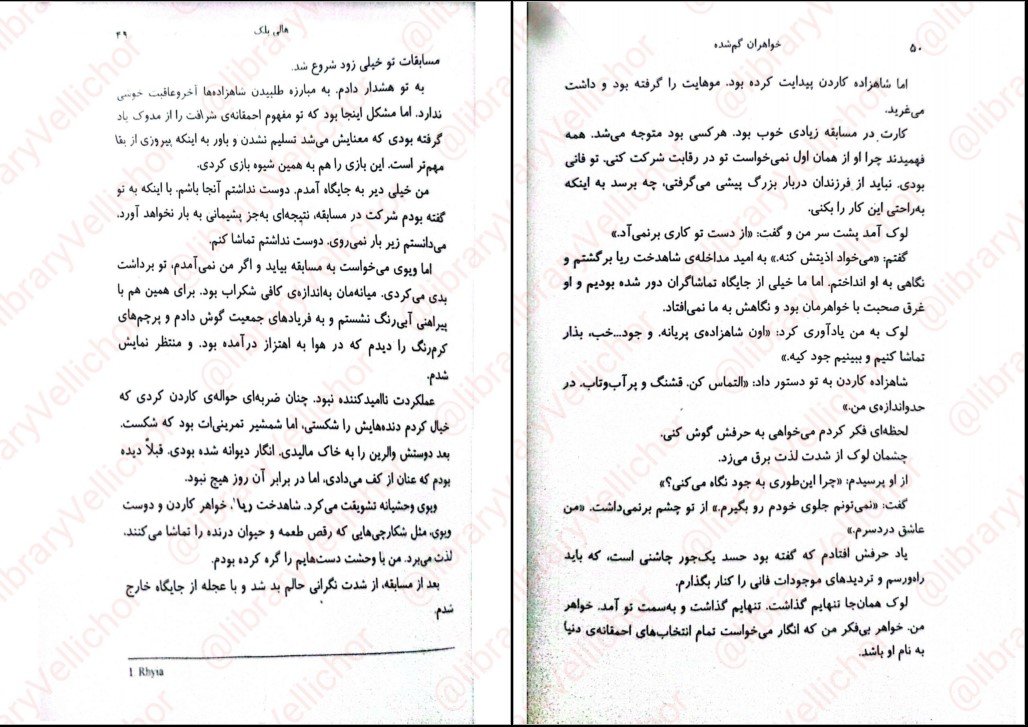 هالی بلک
۴۹
مسابقات تو خیلی زود شروع شد.
به تو هشدار دادم. به مبارزه طلبیدن شاهزاده‌ها آخروعاقبت خوسی
ندارد. اما مشکل اینجا بود که تو مفهوم احمقانه‌ی شرافت را از مدوک یاد
گرفته بودی که معنایش می‌شد تسلیم نشدن و باور به اینکه پیروزی از بقا
مهم‌تر است. این بازی را هم به همین شیوه بازی کردی.
من خیلی دیر به جایگاه آمدم. دوست نداشتم آنجا باشم. با اینکه به تو
گفته بودم شرکت در مسابقه، نتیجه‌ای به‌جز پشیمانی به بار نخواهد آورد،
می‌دانستم زیر بار نمی‌روی. دوست نداشتم تماشا کنم.
اما ویوی می‌خواست به مسابقه بیاید و اگر من نمی‌آمدم، تو برداشت
بدی می‌کردی. میانه‌مان به‌اندازه‌ی کافی شکراب بود. برای همین هم با
پیراهنی آبی‌رنگ نشستم و به فریادهای جمعیت گوش دادم و پرچم‌های
کرم‌رنگ را دیدم که در هوا به اهتزاز درآمده بود. و منتظر نمایش
شدم.
عملکردت ناامیدکننده نبود. چنان ضربه‌ای حواله‌ی کاردن کردی که
خیال کردم دنده‌هایش را شکستی، اما شمشیر تمرینی‌ات بود که شکست.
بعد دوستش والرین را به خاک مالیدی. انگار دیوانه شده بودی. قبلاً دیده
بودم که عنان از کف می‌دادی، اما در برابر آن روز هیچ نبود.
ویوی وحشیانه تشویقت می‌کرد. شاهدخت ریا¹، خواهر کاردن و دوست
ویوی، مثل شکارچی‌هایی که رقص طعمه و حیوان درنده را تماشا می‌کنند،
لذت می‌برد. من با وحشت دست‌هایم را گره کرده بودم.
بعد از مسابقه، از شدت نگرانی حالم بد شد و با عجله از جایگاه خارج
شدم.
1 Rhyia
خواهران گم‌شده
۵۰
اما شاهزاده کاردن پیدایت کرده بود. موهایت را گرفته بود و داشت
می‌غرید.
کارت در مسابقه زیادی خوب بود. هرکسی بود متوجه می‌شد. همه
فهمیدند چرا او از همان اول نمی‌خواست تو در رقابت شرکت کنی. تو فانی
بودی. نباید از فرزندان دربار بزرگ پیشی می‌گرفتی، چه برسد به اینکه
به‌راحتی این کار را بکنی.
لوک آمد پشت سر من و گفت: «از دست تو کاری برنمی‌آد.»
گفتم: «می‌خواد اذیتش کنه.» به امید مداخله‌ی شاهدخت ریا برگشتم و
نگاهی به او انداختم. اما ما خیلی از جایگاه تماشاگران دور شده بودیم و او
غرق صحبت با خواهرمان بود و نگاهش به ما نمی‌افتاد.
لوک به من یادآوری کرد: «اون شاهزاده‌ی پریانه. و جود...خب، بذار
تماشا کنیم و ببینیم جود کیه.»
شاهزاده کاردن به تو دستور داد: «التماس کن. قشنگ و پرآب‌وتاب. در
حدواندازه‌ی من.»
لحظه‌ای فکر کردم می‌خواهی به حرفش گوش کنی.
چشمان لوک از شدت لذت برق می‌زد.
از او پرسیدم: «چرا این‌طوری به جود نگاه می‌کنی؟»
گفت: «نمی‌تونم جلوی خودم رو بگیرم.» از تو چشم برنمی‌داشت. «من
عاشق دردسرم.»
یاد حرفش افتادم که گفته بود حسد یک‌جور چاشنی است، که باید
راه‌ورسم و تردیدهای موجودات فانی را کنار بگذارم.
لوک همان‌جا تنهایم گذاشت. تنهایم گذاشت و به‌سمت تو آمد. خواهر
من. خواهر بی‌فکر من که انگار می‌خواست تمام انتخاب‌های احمقانه‌ی دنیا
به نام او باشد.
@libraryVellichor